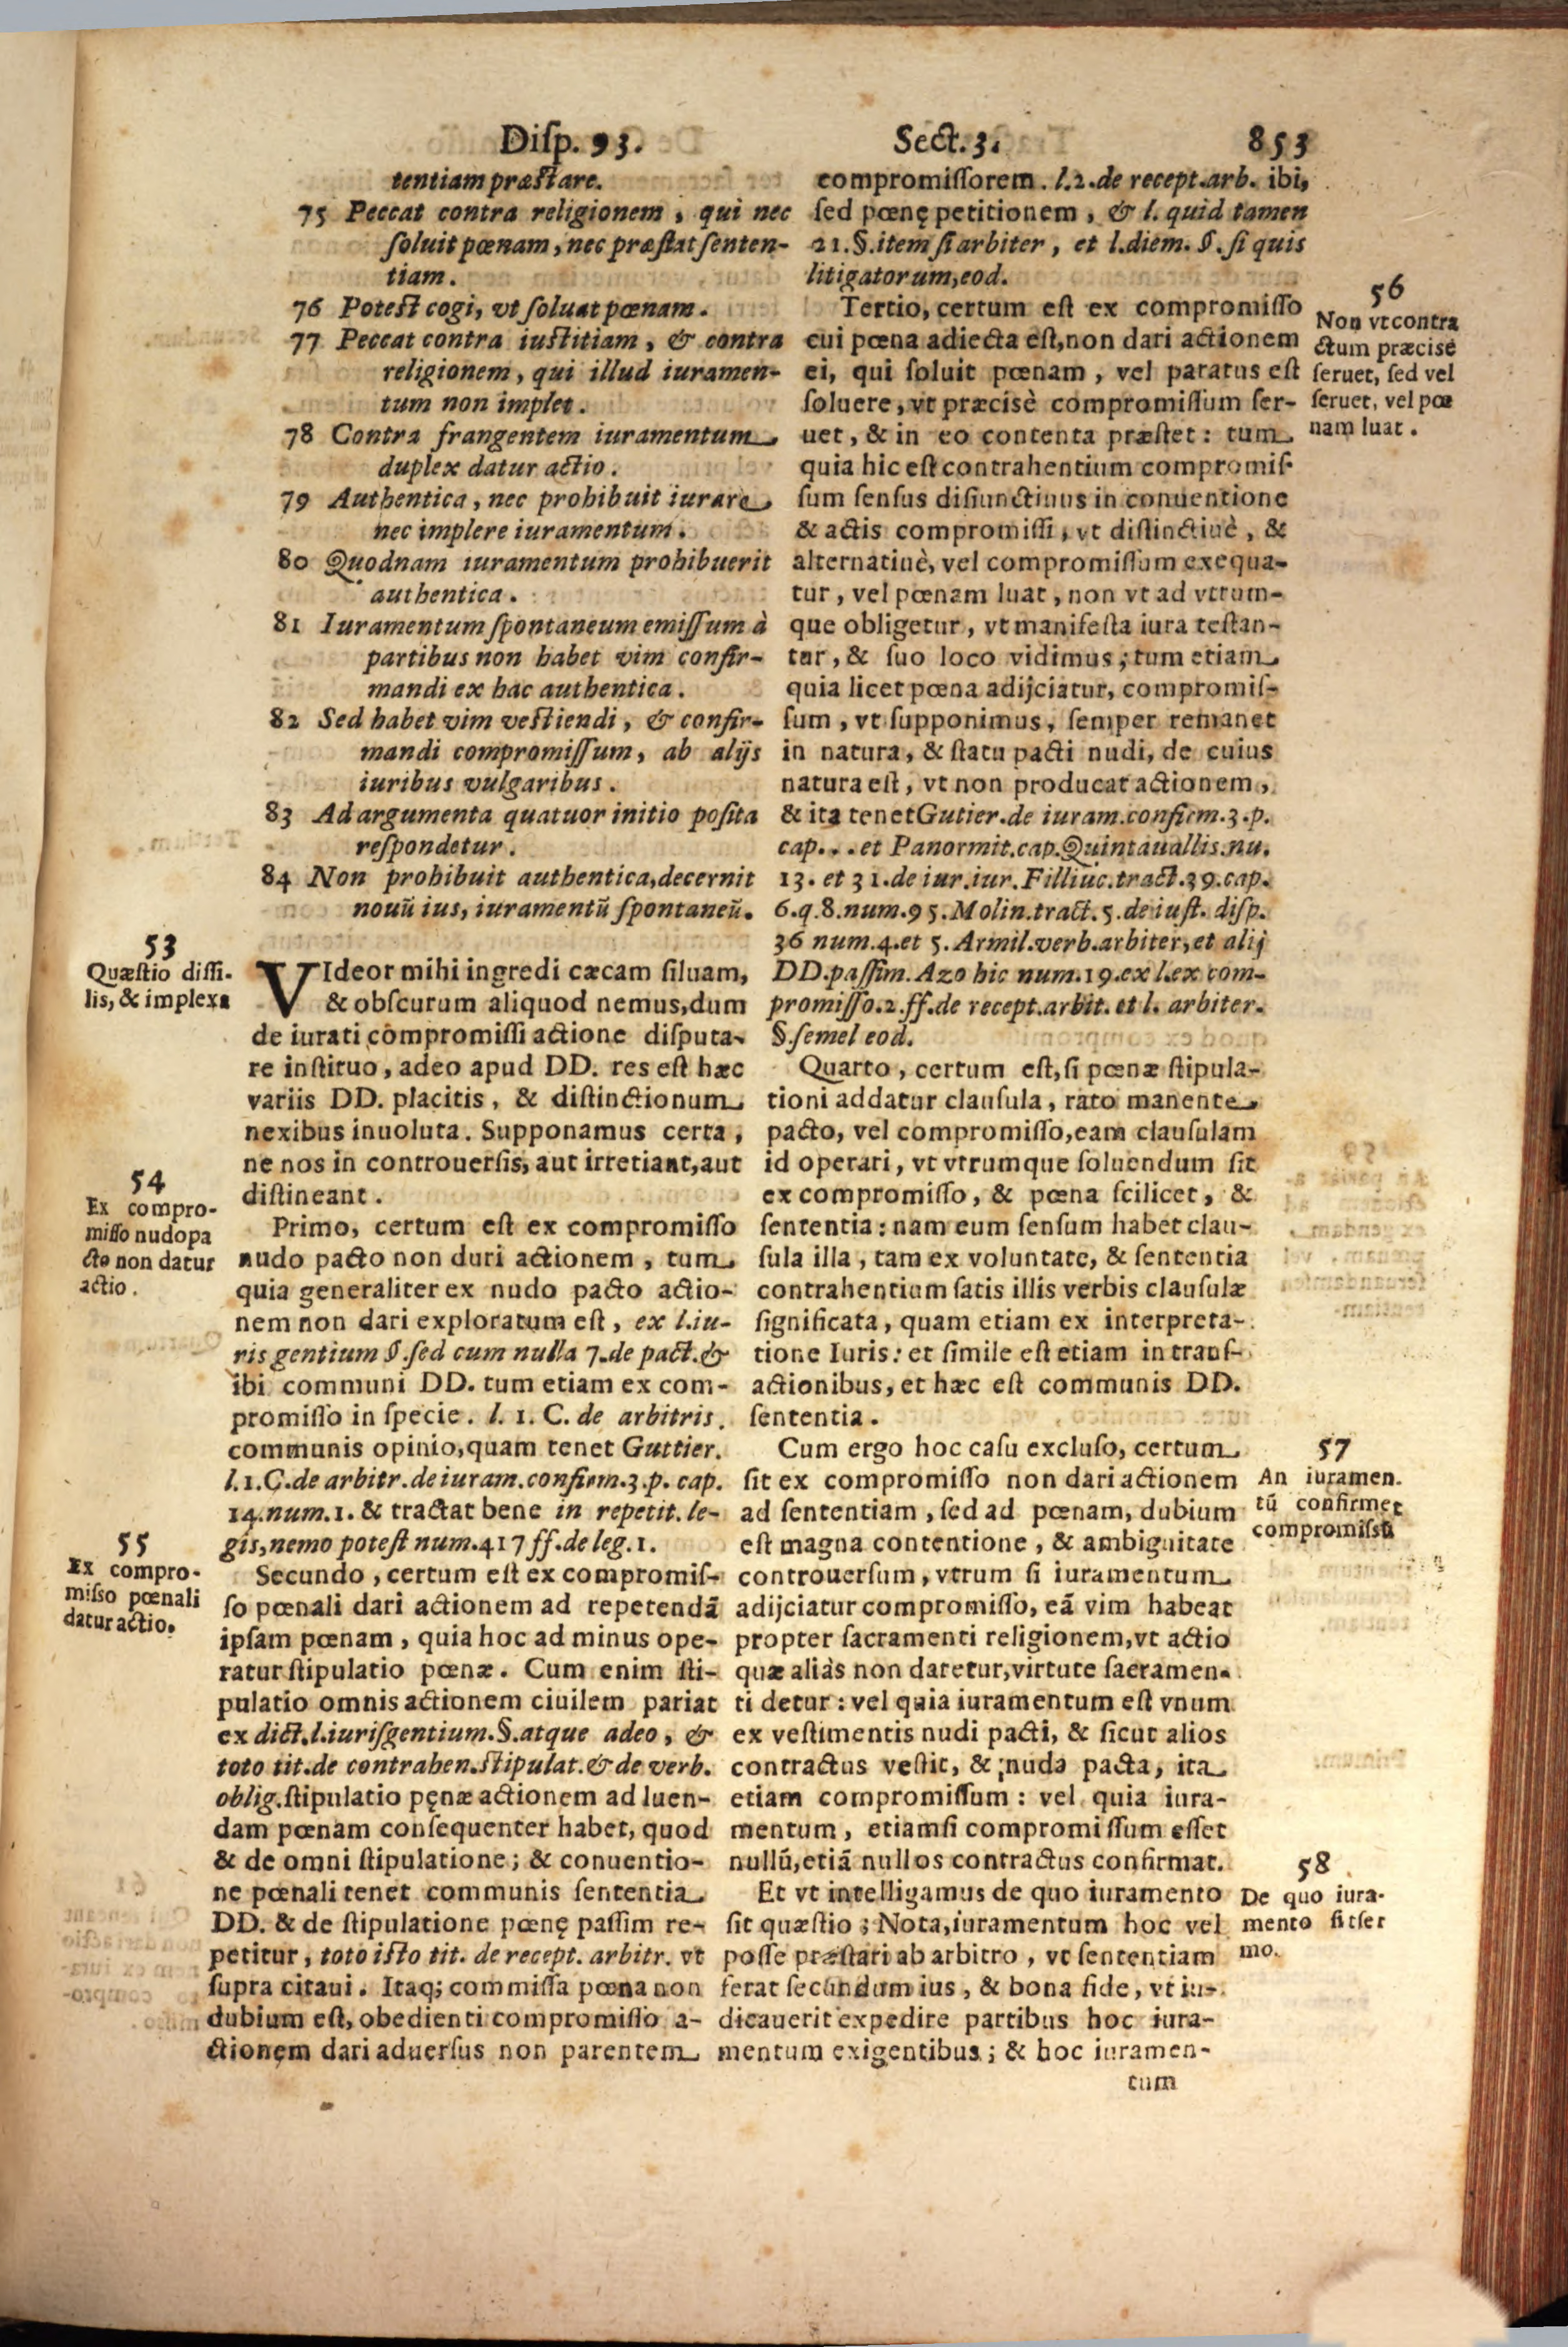 Disp. 93. Sect. 3. 853
tentiam præstare.
75 Peccat contra religionem, qui nec
soluit pœnam, nec præstat senten-
tiam.
76 Potest cogi, vt soluat pœnam.
77 Peccat contra iustitiam, & contra
religionem, qui illud iuramen-
tum non implet.
78 Contra frangentem iuramentum
duplex datur actio.
79 Authentica, nec prohibuit iurare
nec implere iuramentum.
80 Quodnam iuramentum prohibuerit
authentica.
81 Iuramentum spontaneum emissum à
partibus non habet vim confir-
mandi ex hac authentica.
82 Sed habet vim vestiendi, & confir-
mandi compromissum, ab alijs
iuribus vulgaribus.
83 Ad argumenta quatuor initio posita
respondetur.
84 Non prohibuit authentica, decernit
nouũ ius, iuramentũ spontaneũ.
53
Quæstio diffi-
lis, & implexa
VIdeor mihi ingredi cæcam siluam,
& obscurum aliquod nemus, dum
de iurati compromissi actione disputa-
re instituo, adeo apud DD. res est hæc
variis DD. placitis, & distinctionum
nexibus inuoluta. Supponamus certa,
ne nos in controuersis, aut irretiant, aut
distineant.
54
Ex compro-
misso nudo pa
cto non datur
actio.
Primo, certum est ex compromisso
nudo pacto non duri actionem, tum
quia generaliter ex nudo pacto actio-
nem non dari exploratum est, ex l. iu-
ris gentium §. sed cum nulla 7. de pact. &
ibi communi DD. tum etiam ex com-
promisso in specie. l. 1. C. de arbitris.
communis opinio, quam tenet Guttier.
l. 1. C. de arbitr. de iuram. confirm. 3. p. cap.
14. num. 1. & tractat bene in repetit. le-
gis, nemo potest num. 417 ff. de leg. 1.
55
Ex compro-
misso pœnali
datur actio.
Secundo, certum est ex compromis-
so pœnali dari actionem ad repetendã
ipsam pœnam, quia hoc ad minus ope-
ratur stipulatio pœnæ. Cum enim sti-
pulatio omnis actionem ciuilem pariat
ex dict. l. iurisgentium. §. atque adeo, &
toto tit. de contrahen. stipulat. & de verb.
oblig. stipulatio pęnæ actionem ad luen-
dam pœnam consequenter habet, quod
& de omni stipulatione; & conuentio-
ne pœnali tenet communis sententia
DD. & de stipulatione pœnę passim re-
petitur, toto isto tit. de recept. arbitr. vt
supra citaui. Itaq; commissa pœna non
dubium est, obedienti compromisso a-
ctionem dari aduersus non parentem
compromissorem. l. 2. de recept. arb. ibi,
sed pœnę petitionem, & l. quid tamen
21. §. item si arbiter, et l. diem. §. si quis
litigatorum, eod.
56
Non vt contra
ctum præcisè
seruet, sed vel
seruet, vel pœ
nam luat.
Tertio, certum est ex compromisso
cui pœna adiecta est, non dari actionem
ei, qui soluit pœnam, vel paratus est
soluere, vt præcisè compromissum ser-
uet, & in eo contenta præstet: tum
quia hic est contrahentium compromis-
sum sensus disiunctiuus in conuentione
& actis compromissi, vt distinctiuè, &
alternatiuè, vel compromissum exequa-
tur, vel pœnam luat, non vt ad vtrum-
que obligetur, vt manifesta iura testan-
tur, & suo loco vidimus; tum etiam
quia licet pœna adijciatur, compromis-
sum, vt supponimus, semper remanet
in natura, & statu pacti nudi, de cuius
natura est, vt non producat actionem,
& ita tenet Gutier. de iuram. confirm. 3. p.
cap. . . et Panormit. cap. Quintauallis. nu.
13. et 31. de iur. iur. Filliuc. tract. 39. cap.
6. q. 8. num. 95. Molin. tract. 5. de iust. disp.
36 num. 4. et 5. Armil. verb. arbiter, et alij
DD. passim. Azo hic num. 19. ex l. ex com-
promisso. 2. ff. de recept. arbit. et l. arbiter.
§. semel eod.
Quarto, certum est, si pœnæ stipula-
tioni addatur clausula, rato manente
pacto, vel compromisso, eam clausulam
id operari, vt vtrumque soluendum sit
ex compromisso, & pœna scilicet, &
sententia: nam eum sensum habet clau-
sula illa, tam ex voluntate, & sententia
contrahentium satis illis verbis clausulæ
significata, quam etiam ex interpreta-
tione Iuris: et simile est etiam in trans-
actionibus, et hæc est communis DD.
sententia.
57
An iuramen.
tũ confirmet
compromissũ
Cum ergo hoc casu excluso, certum
sit ex compromisso non dari actionem
ad sententiam, sed ad pœnam, dubium
est magna contentione, & ambiguitate
controuersum, vtrum si iuramentum
adijciatur compromisso, eã vim habeat
propter sacramenti religionem, vt actio
quæ aliàs non daretur, virtute sacramen-
ti detur: vel quia iuramentum est vnum
ex vestimentis nudi pacti, & sicut alios
contractus vestit, & nuda pacta, ita
etiam compromissum: vel quia iura-
mentum, etiamsi compromissum esset
nullũ, etiã nullos contractus confirmat.
58
De quo iura-
mento sit ser
mo.
Et vt intelligamus de quo iuramento
sit quæstio; Nota, iuramentum hoc vel
posse præstari ab arbitro, vt sententiam
ferat secundum ius, & bona fide, vt iu-
dicauerit expedire partibus hoc iura-
mentum exigentibus; & hoc iuramen-
tum